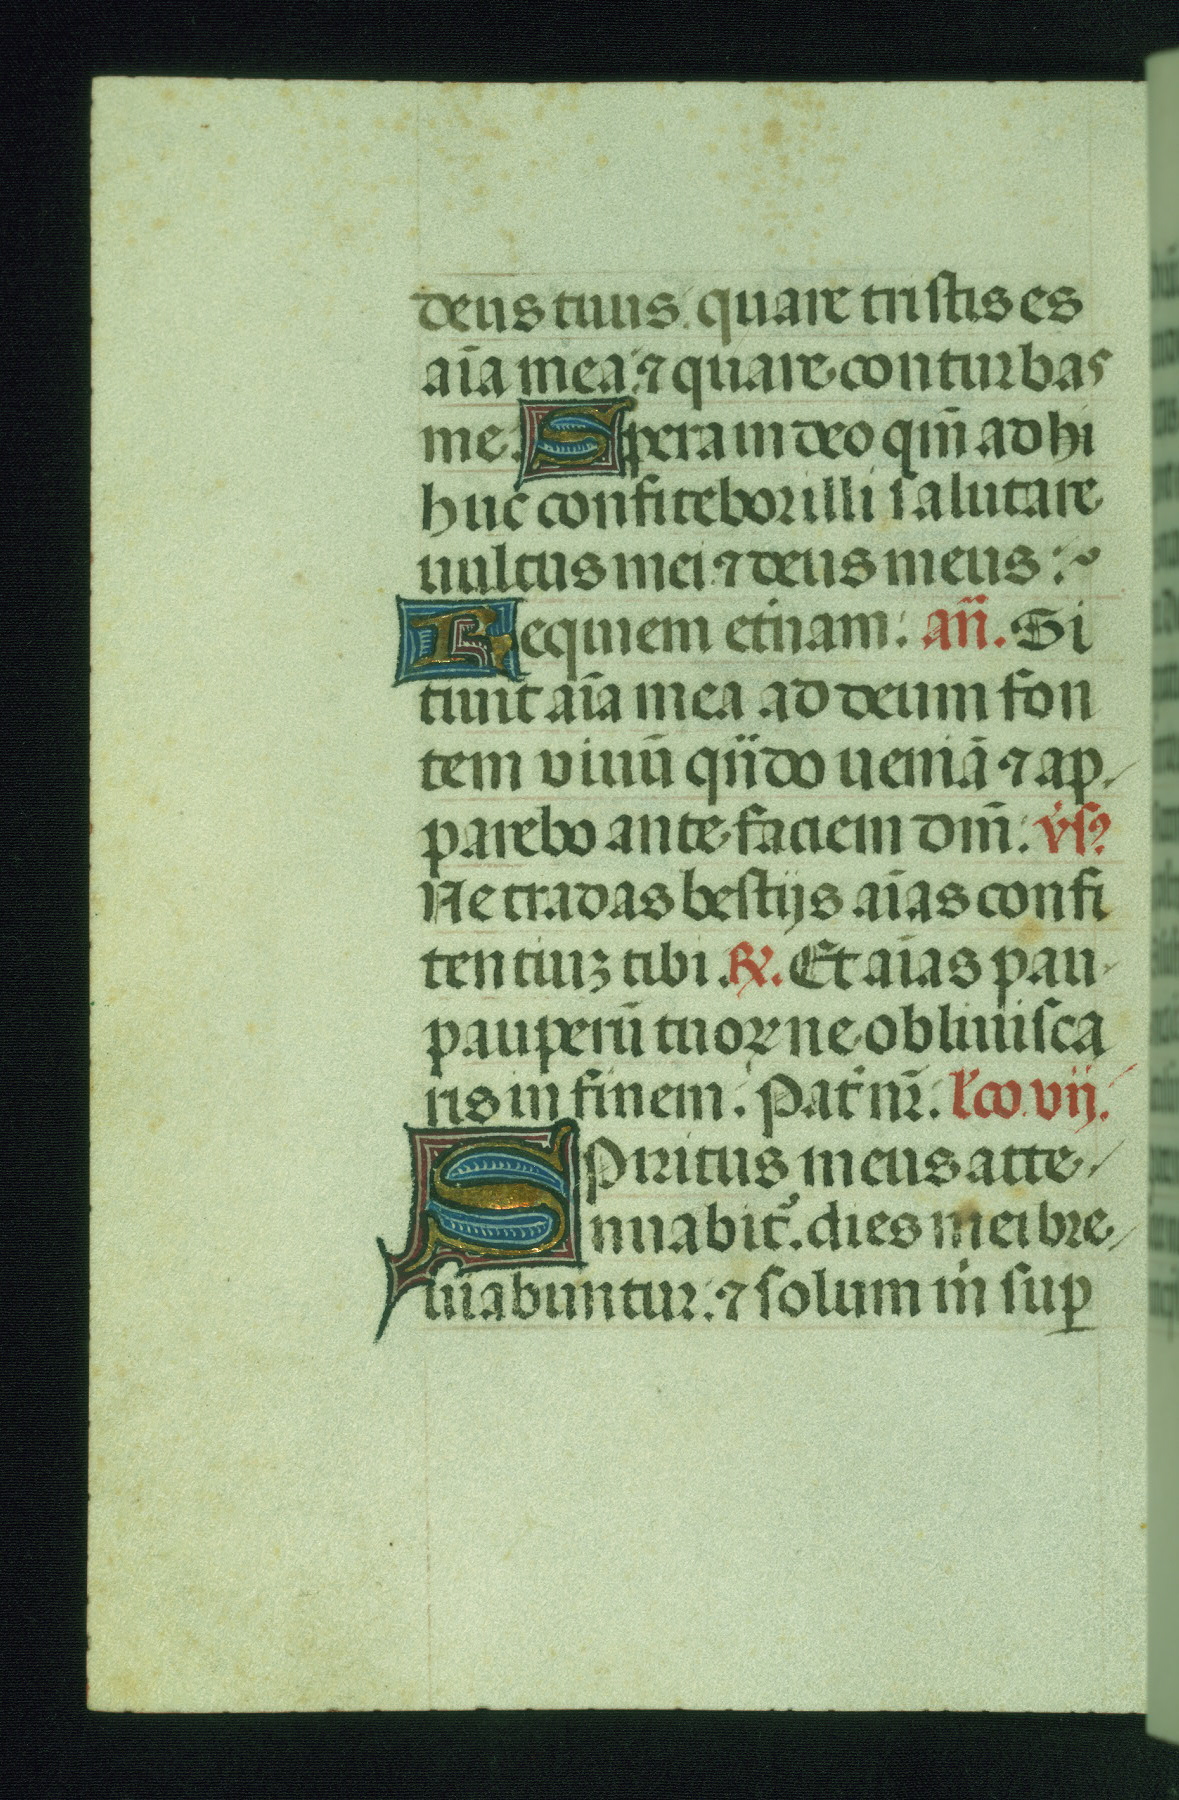 deus tuus. quare tristis es
aīa mea: ⁊ quare conturbas
me. Spera in deo qm̄ adhi
huc confitebor illi salutare
uultus mei ⁊ deus meus:
Requiem et̄nam: añ. Si
tiuit aīa mea ad deum fon
tem viuū qn̄do ueniā ⁊ ap
parebo ante faciem dm̄: v̄s
Ne tradas bestijs aīas confi
tentiuꝫ tibi. ℟. Et aīas pau
pauperū tuoꝝ ne obliuisca
ris in finem. Pat̄ nr̄. l̄co vij.
Spiritus meus atte
nuabit᷒. dies mei bre
uiabuntur: ⁊ solum m̄ suꝑ